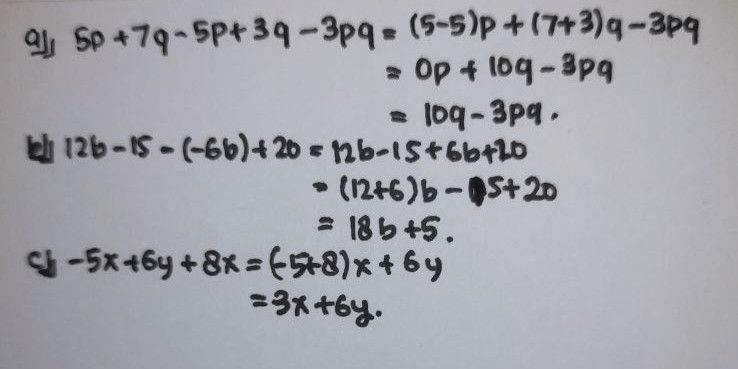 a) 5p+7q-5p+3q-3pq = (5-5)p + (7+3)q-3pq
= 0p + 10q - 3pq
= 10q - 3pq.
b) 12b-15-(-6b)+20 = 12b-15+6b+20
= (12+6)b - 15+20
= 18b+5.
c) -5x+6y+8x = (-5+8)x + 6y
= 3x+6y.